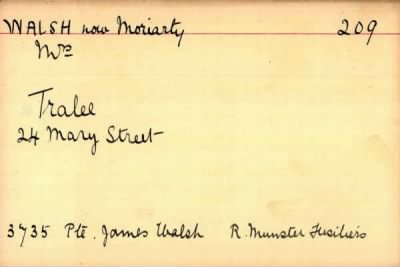 WALSH now Moriarty 209
Mrs
Tralee
24 Mary Street
3735 Pte. James Walsh R. Munster Fusiliers